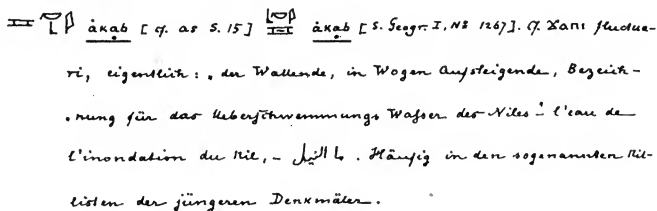 åkab [ cf. as S. 15 ] åkab [ S. Geogr. I, N° 1267 ]. cf. fluctua-
ri, eigentlich: „der Wallende, in Wogen Aufsteigende, Bezeich-
nung für das Ueberschwemmungs Wasser des Niles“ – l'eau de
l'inondation du Nil, – ما النيل . Häufig in den sogenannten Nil-
listen der jüngeren Denkmäler.